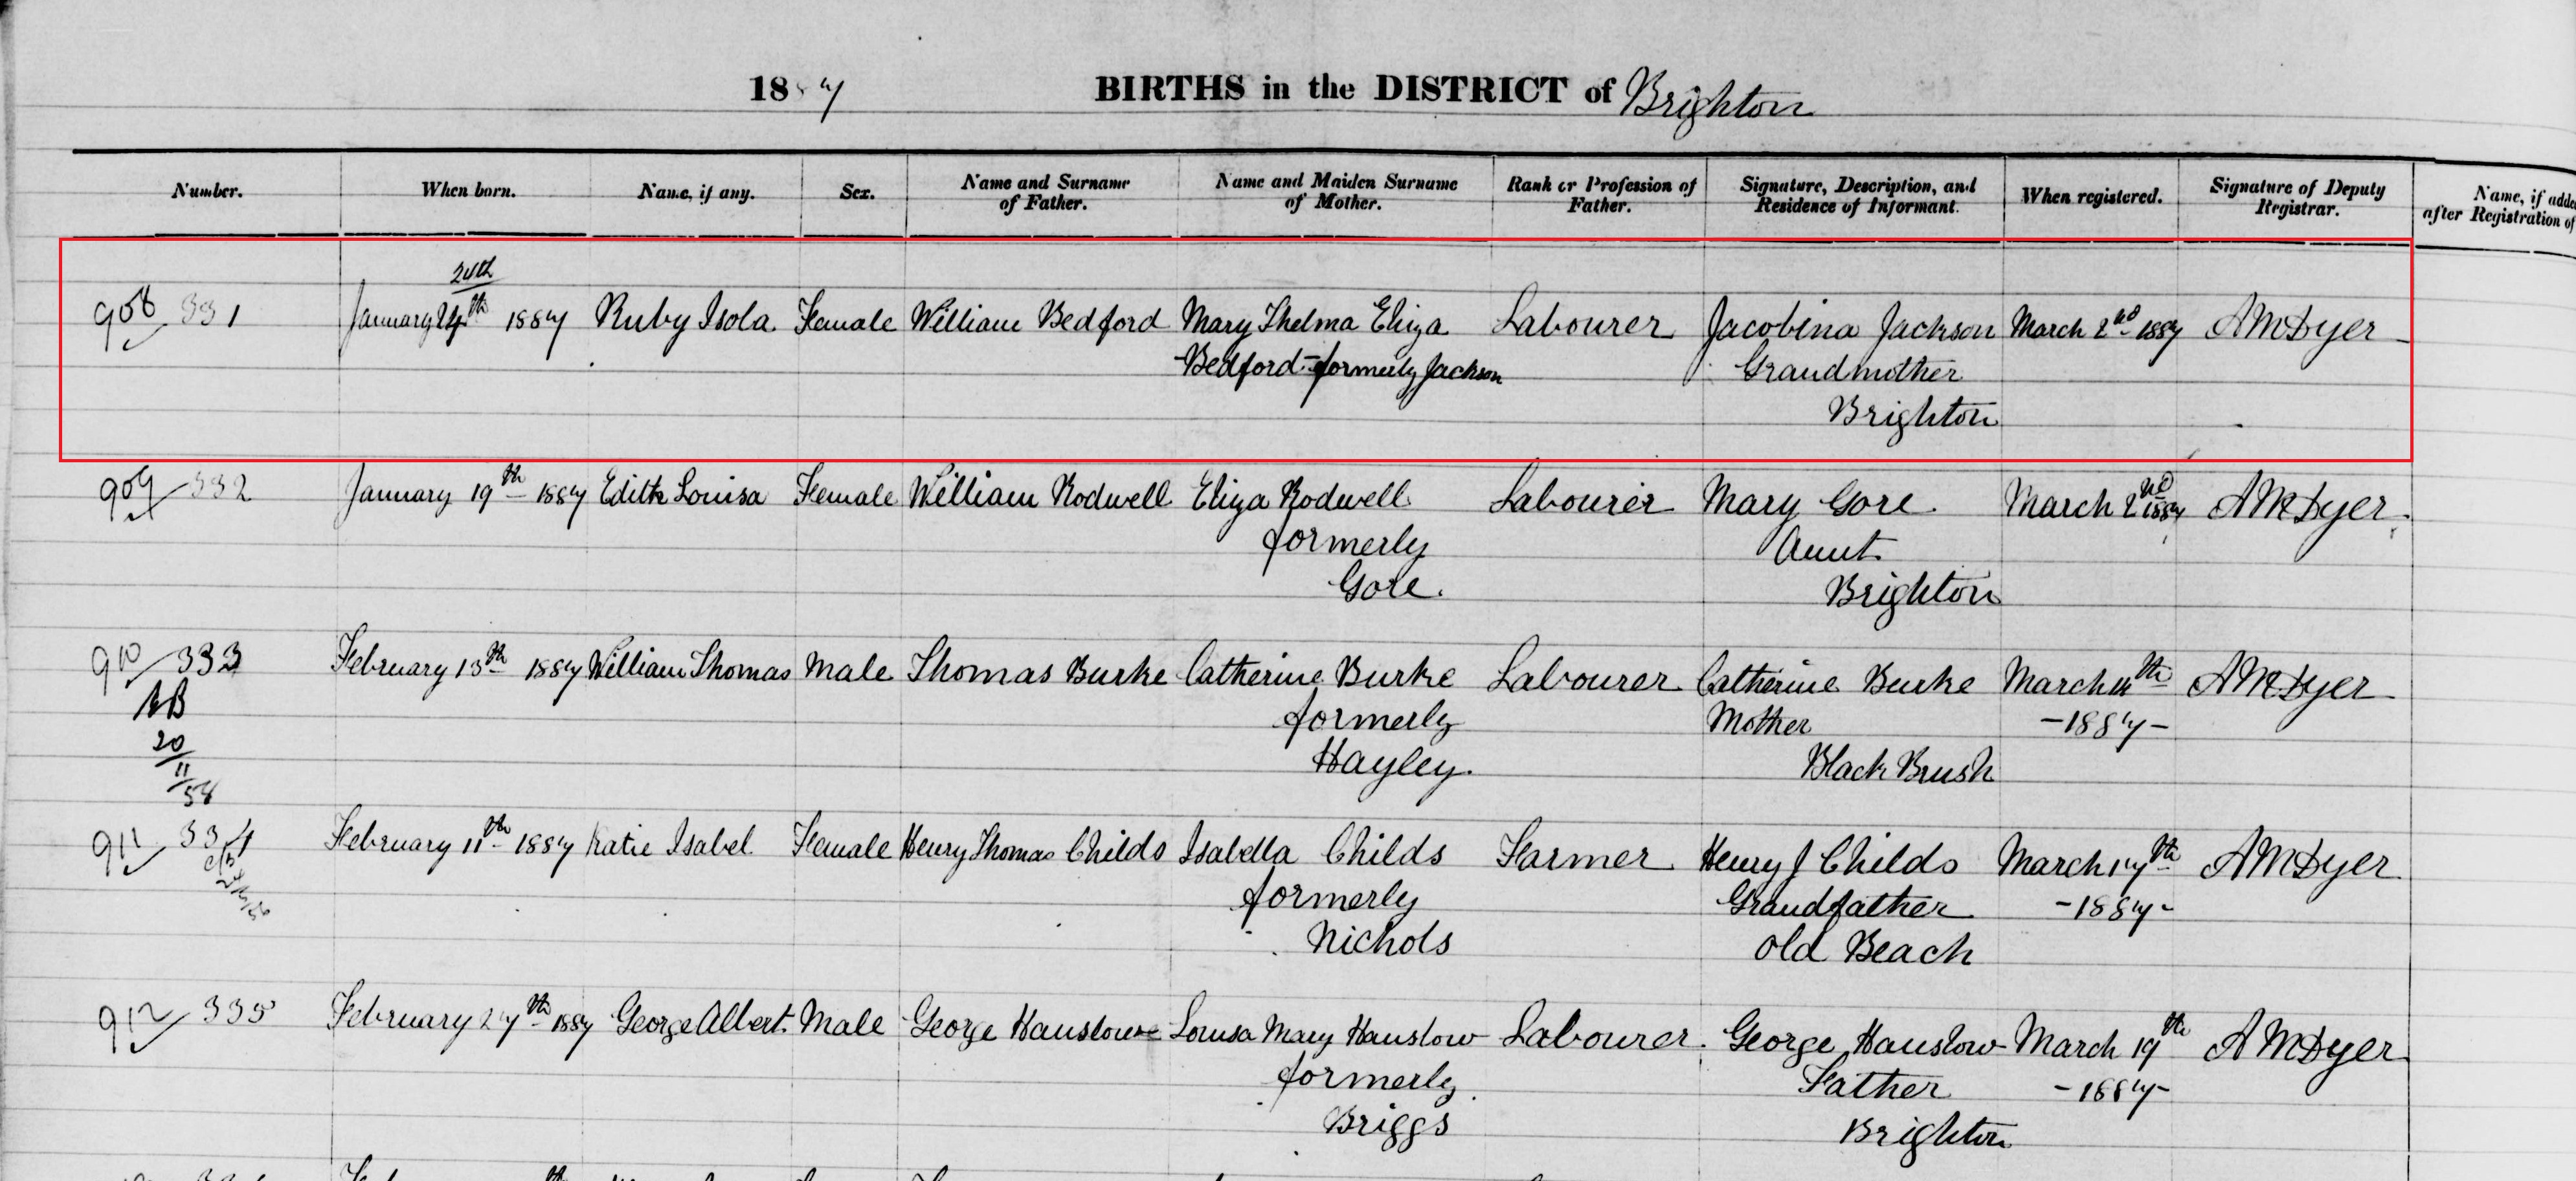 1887 BIRTHS in the DISTRICT of Brighton
Number. When born. Name, if any. Sex. Name and Surname of Father. Name and Maiden Surname of Mother. Rank or Profession of Father. Signature, Description, and Residence of Informant. When registered. Signature of Deputy Registrar. Name, if adde after Registration of
24th
908 331 January 24th 1887 Ruby Isola Female William Bedford Mary Thelma Eliza Labourer Jacobina Jackson March 2nd 1887 A M Dyer
Bedford - formerly Jackson Grandmother
Brighton
909 332 January 19th 1887 Edith Louisa Female William Rodwell Eliza Rodwell Labourer Mary Gore March 2nd 1887 A M Dyer
formerly Aunt
Gore. Brighton
910 333 February 13th 1887 William Thomas Male Thomas Burke Catherine Burke Labourer Catherine Burke March 14th A M Dyer
formerly Mother -1887-
Hayley. Black Brush
20
11
58
911 334 February 11th 1887 Katie Isabel Female Henry Thomas Childs Isabella Childs Farmer Henry J Childs March 17th A M Dyer
formerly Grandfather -1887-
Nichols Old Beach
912 335 February 27th 1887 George Albert Male George Hanslow Louisa Mary Hanslow Labourer George Hanslow March 19th A M Dyer
formerly Father -1887-
Briggs Brighton